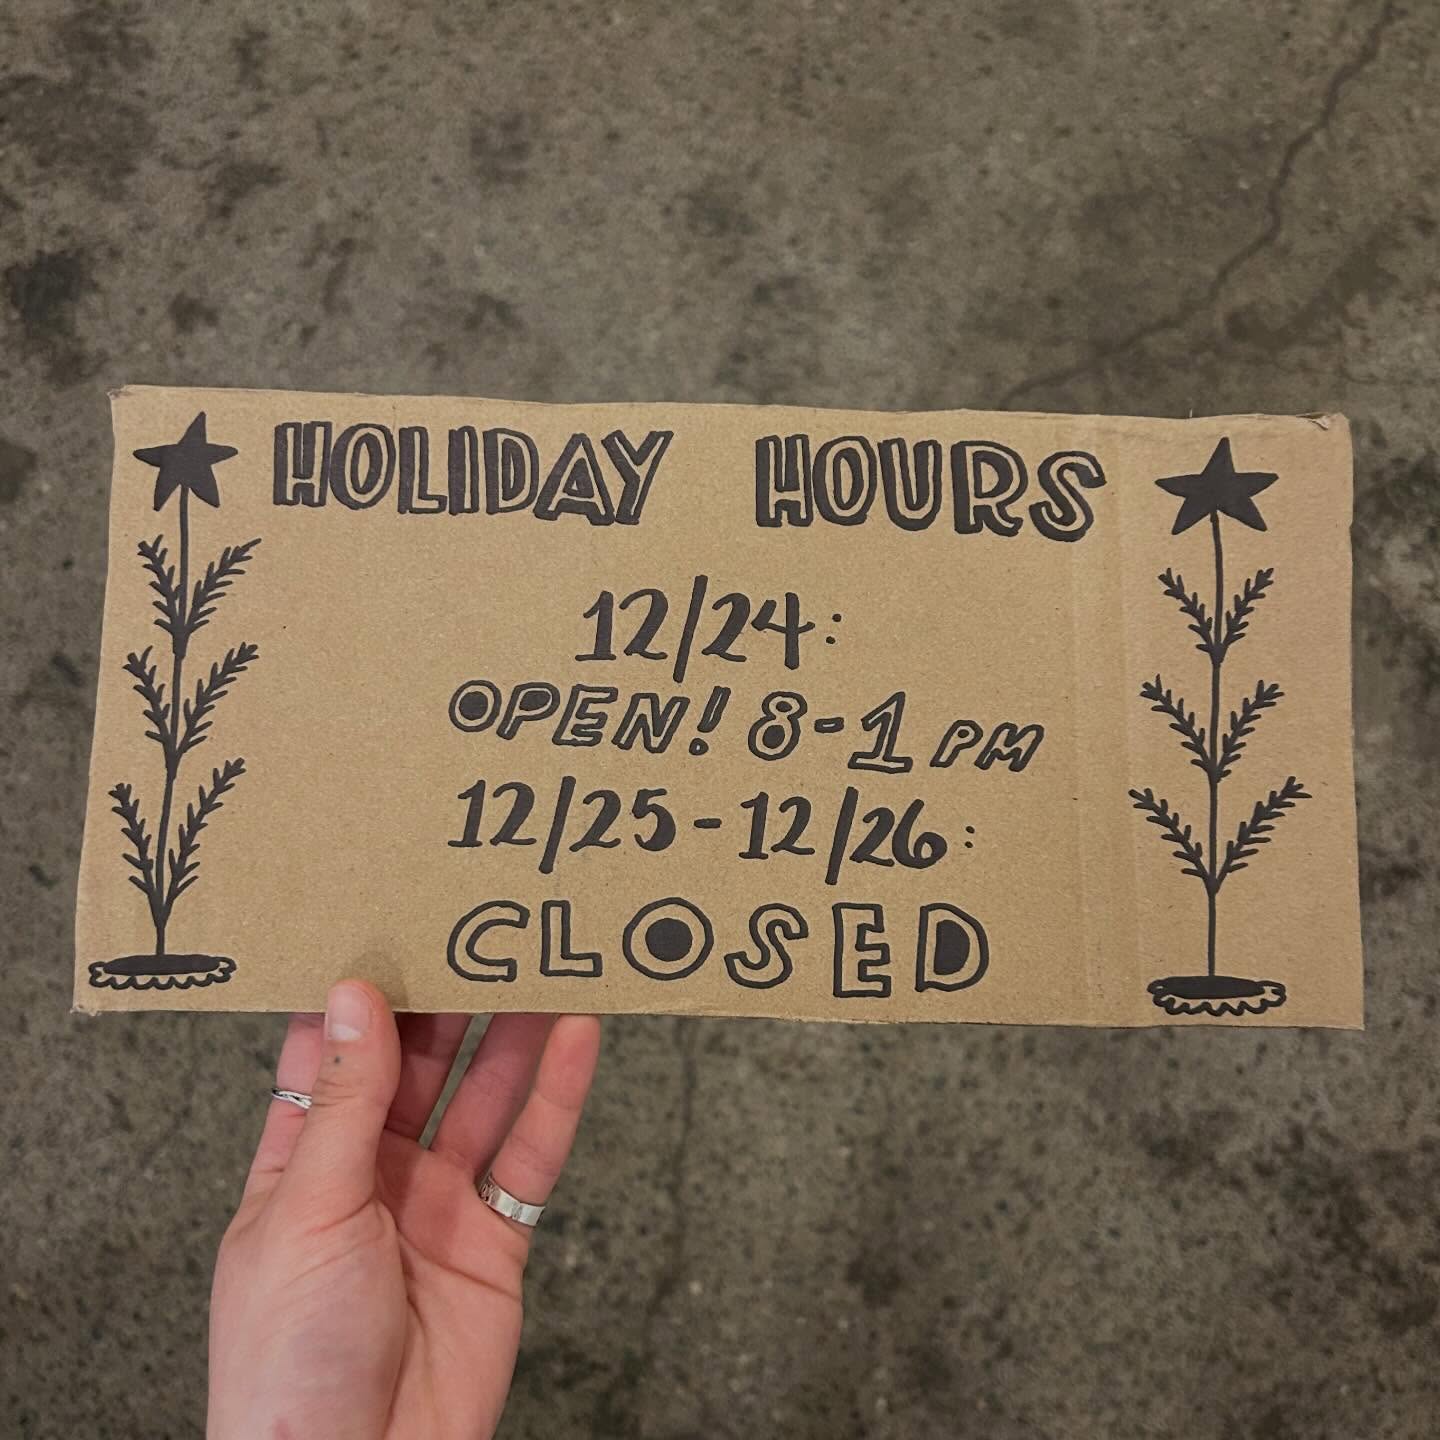 HOLIDAY HOURS
12/24:
OPEN! 8-1 PM
12/25-12/26:
CLOSED